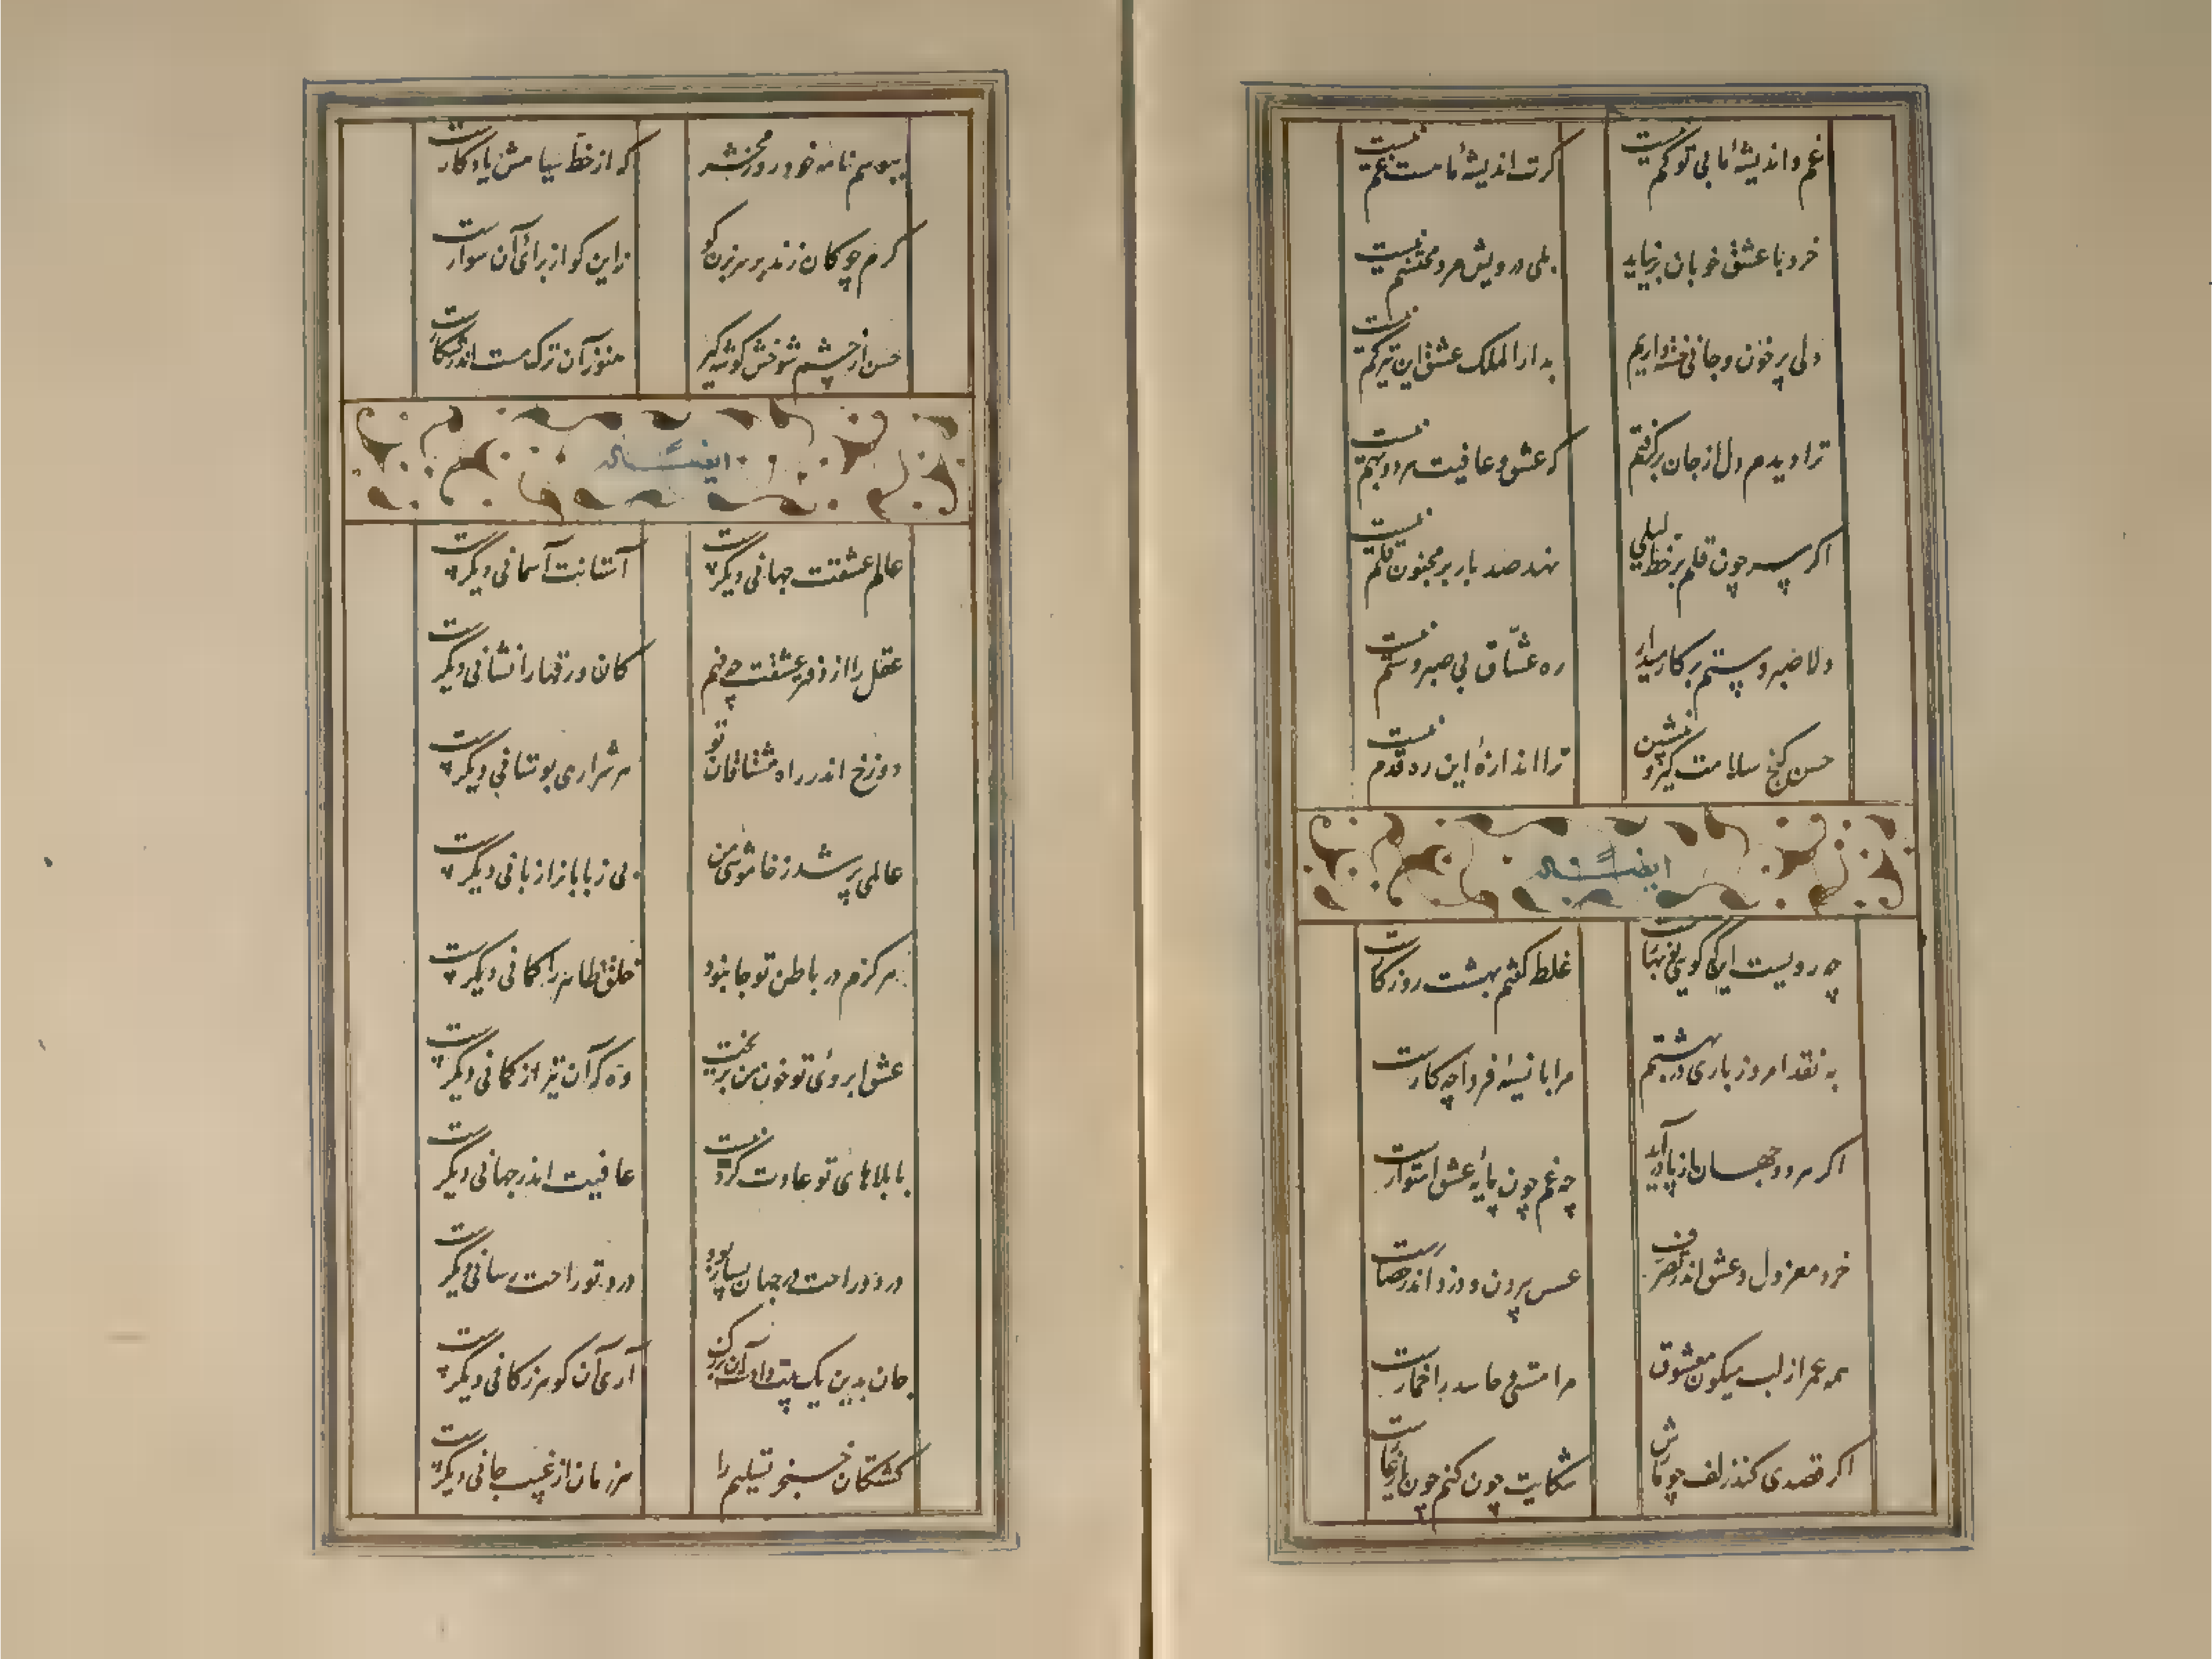 غم و اندیشهٔ ما بی تو کم نیست
کرت اندیشهٔ ما هست غم نیست
خرد با عشق خوبان برنیاید
بلی درویش مرد محتشم نیست
دلی پر خون و جانی خسته داریم
بدار الملک عشق این نیز کم نیست
ترا دیدم دل از جان برکرفتم
که عشق و عافیت هر دو بهم نیست
اکر سر چون قلم بر خط لیلی
نهد صد بار بر مجنون قلم نیست
دلا صبر و ستم بر کار میدار
ره عشّاق بی صبر و ستم نیست
حسن کنج سلامت کیر و بنشین
ترا اندازهٔ این ره قدم نیست
ایضاً له
چه رویست این که کویی نو بهارست
غلط کفتم بهشت روزکارست
به نقد امروز باری در بهشتم
مرا با نسیهٔ فردا چه کارست
اکر هر دو جهان از پا درآید
چه غم چون پایهٔ عشق استوارست
خرد معزول و عشق اندر تصرف
عسس بیرون و دزد اندر حصارست
همه عمر از لب میکون معشوق
مرا مستی و حاسد را خمارست
اکر قصدی کند زلف چو مارش
شکایت چون کنم چون یار غارست
ببوسم نامه خود روز محشر
که از خط سیاهش یادکارست
کرم چوکان زند بر سر بزن کو
زاین کو از برای آن سوارست
حسن از چشم شوخش کوشه کیر
هنوز آن ترک مست اندر شکارست
ایضاً له
عالم عشقت جهانی دیکرست
آستانت آسمانی دیکرست
عقل را از دفتر عشقت چه فهم
کان ورقها را نشانی دیکرست
دوزخ اندر راه مشتاقان تو
هر شراری بوستانی دیکرست
عالمی پر شد ز خاموشی من
بی زبانانرا زبانی دیکرست
هرکزم در باطن تو جا نبود
خلق ظاهر را کمانی دیکرست
عشق ابروی تو خون من بریخت
وه که آن تیر از کمانی دیکرست
با بلاهای تو عادت کردنیست
عافیت اندر جهانی دیکرست
درد و راحت در جهان بسیار بود
درد تو راحت رسانی دیکرست
جان بدین یک بیت دادت آن بزرک
آری آن کوهر ز کانی دیکرست
کشتکان خنجر تسلیم را
هر زمان از غیب جانی دیکرست